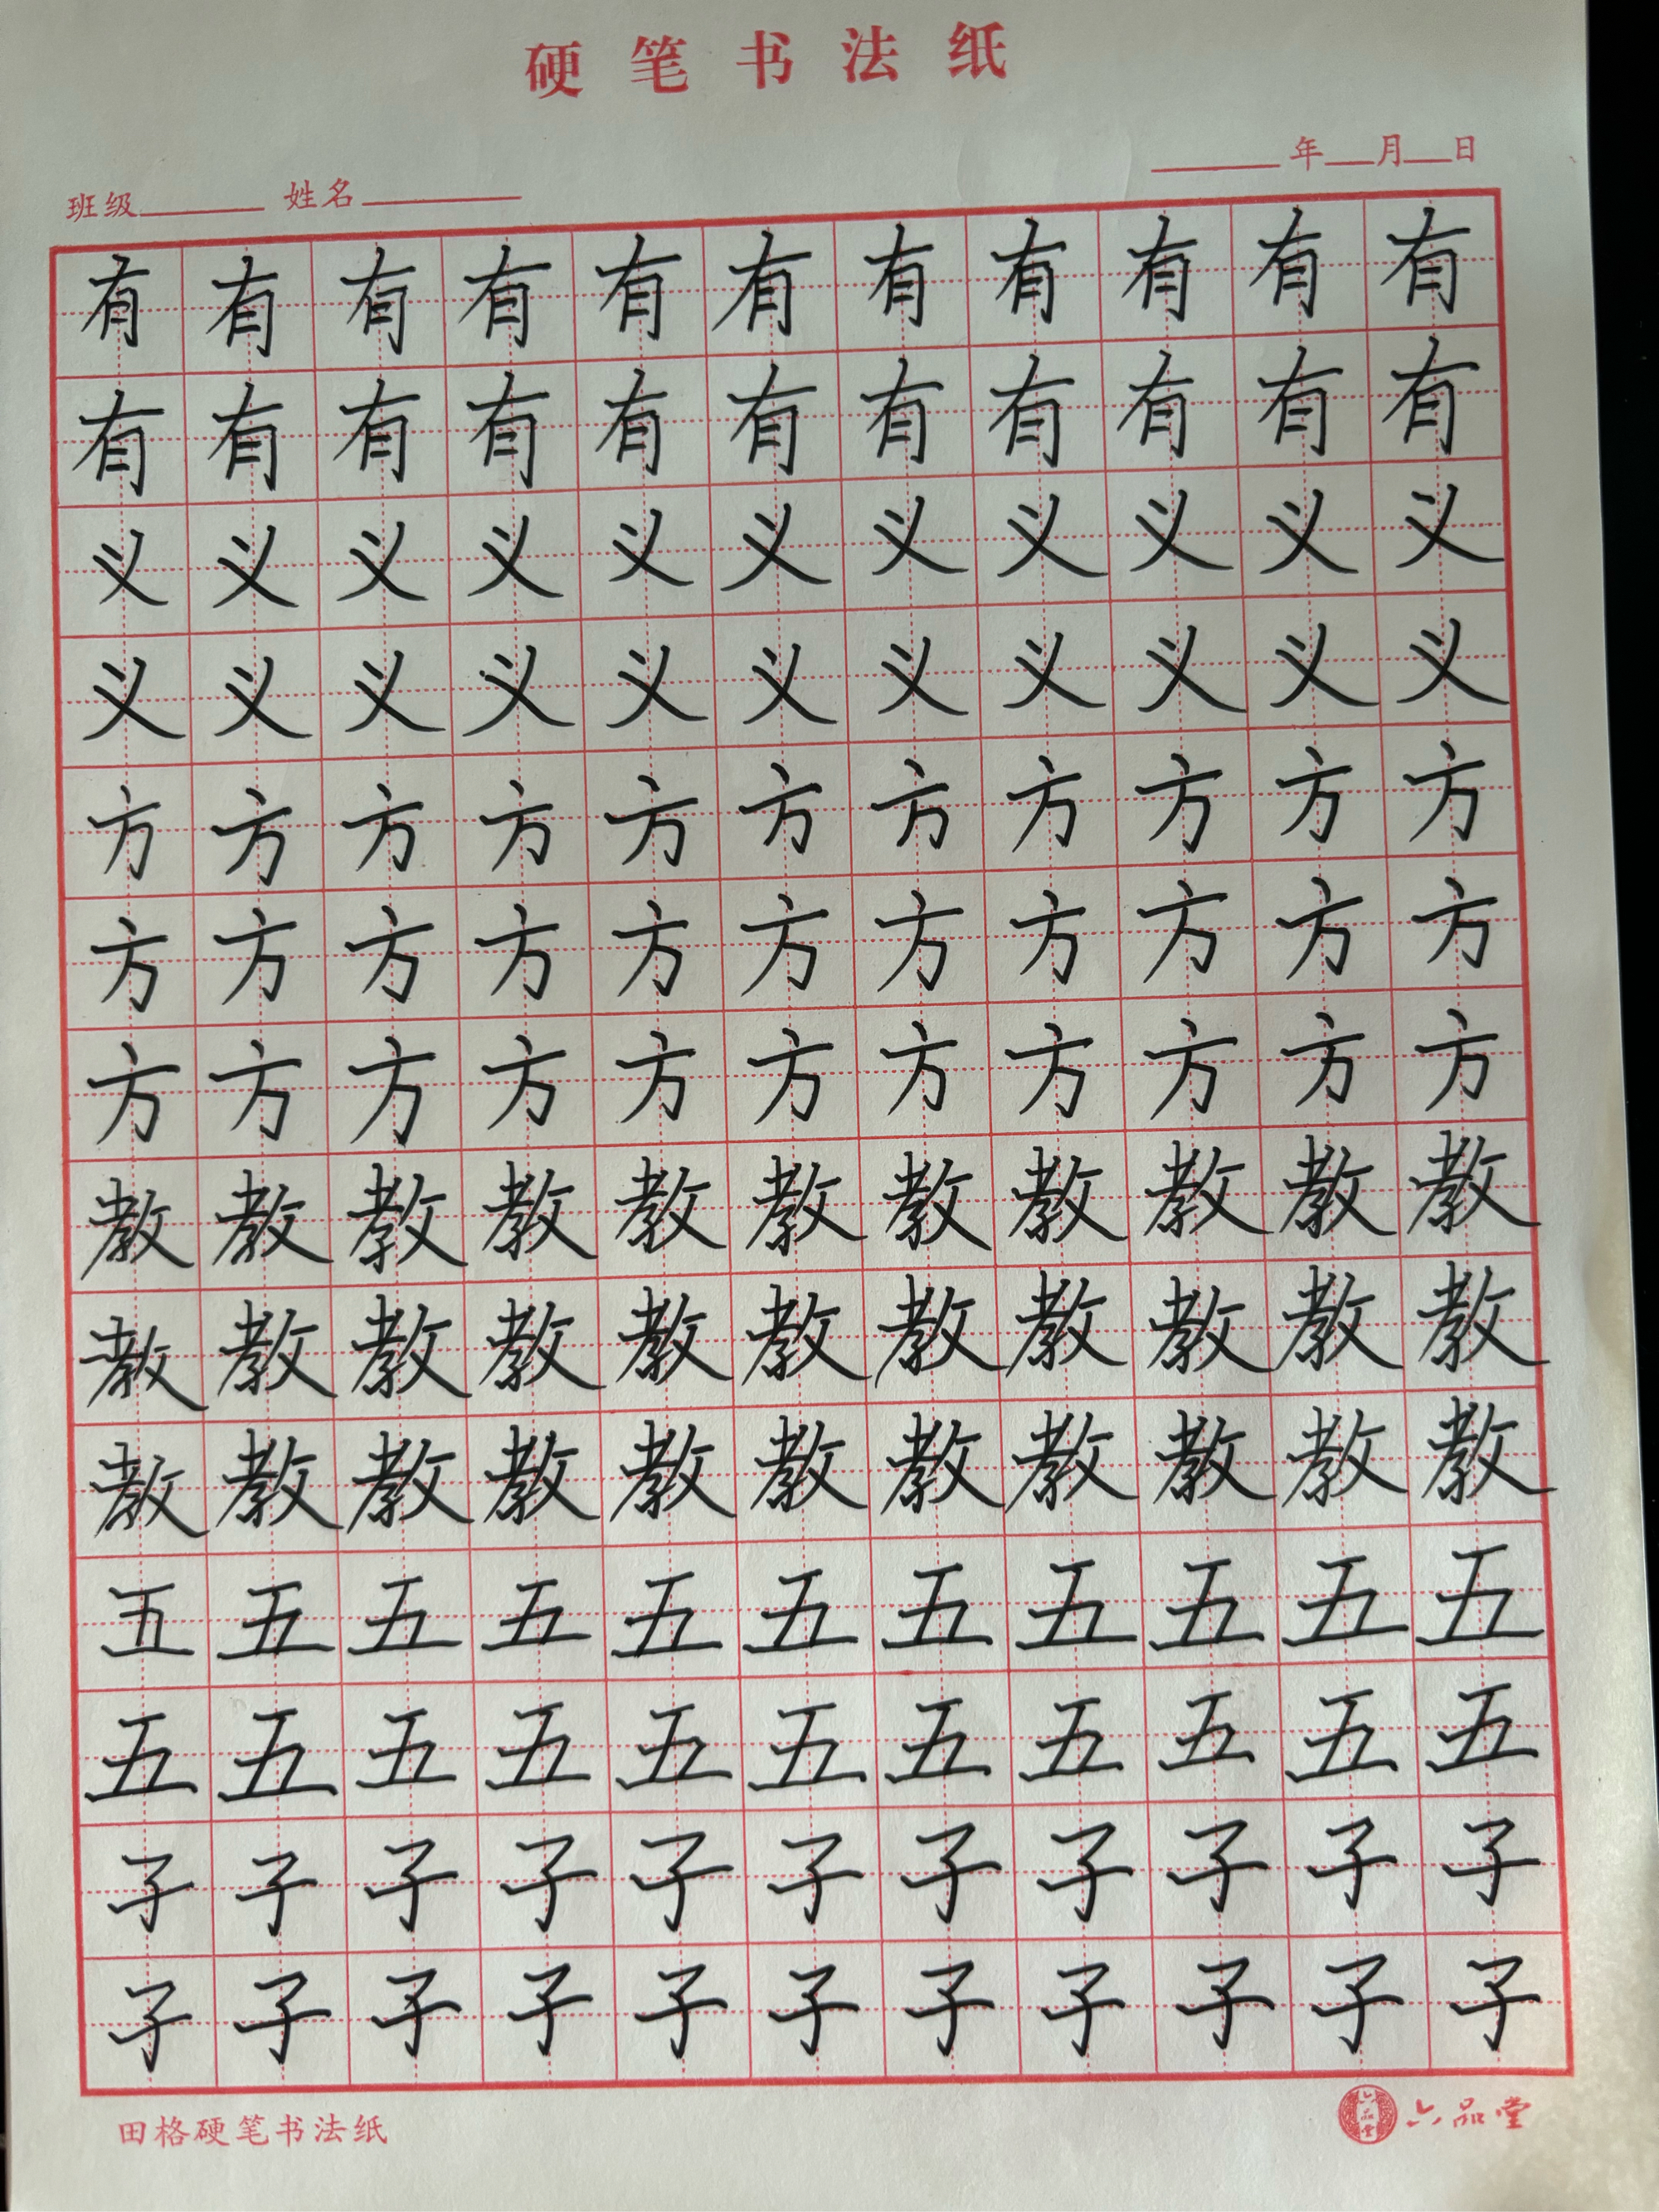 硬笔书法纸
年 月 日
班级 姓名
有有有有有有有有有有有
有有有有有有有有有有有
义义义义义义义义义义义
义义义义义义义义义义义
方方方方方方方方方方方
方方方方方方方方方方方
方方方方方方方方方方方
教教教教教教教教教教教
教教教教教教教教教教教
教教教教教教教教教教教
五五五五五五五五五五五
五五五五五五五五五五五
子子子子子子子子子子子
子子子子子子子子子子子
田格硬笔书法纸
六品堂 六品堂